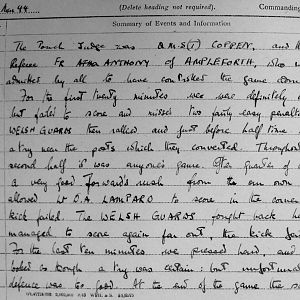 44.
(Delete heading not required).
Commanding
Summary of Events and Information
The Touch Judge was Q.M.S.(I) COPPEN, and
Referee FR ANTHONY of AMPLEFORTH, who
admitted by all to have controlled the game
For the first twenty minutes we were definitely
but failed to score and missed two fairly easy penalties
WELSH GUARDS then rallied and just before half time
a try near the posts which they converted. Throughout
second half it was anyone's game. After quarter of
a very good forward's rush from the own
allowed Lt O.A. LAMPARD to score in the corner
kick failed. The WELSH GUARDS fought back
managed to score again far out the kick
For the last ten minutes we pressed hard, and
looked as though a try was certain: but unfort
defence was so good. At the end of the game the